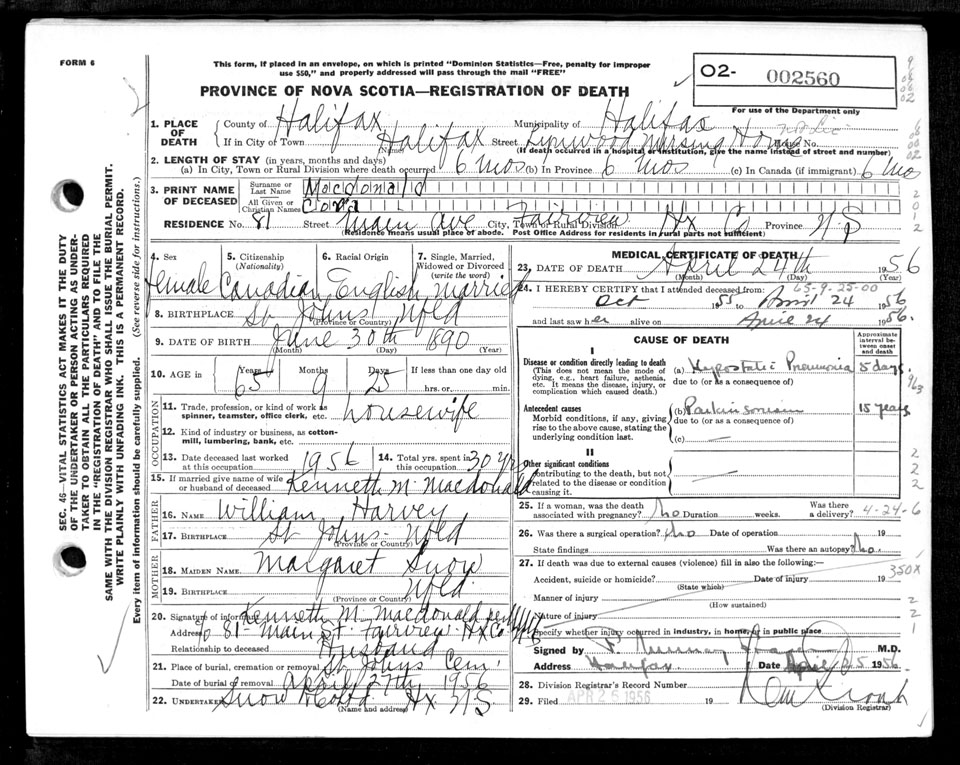 FORM 6
This form, if placed in an envelope, on which is printed "Dominion Statistics—Free, penalty for improper
use $50," and properly addressed will pass through the mail "FREE"
PROVINCE OF NOVA SCOTIA—REGISTRATION OF DEATH
O2- 002560
For use of the Department only
1. PLACE OF DEATH
County of Halifax Municipality of Halifax
If in City or Town Halifax Street Nursing Home No.
(Name) (If death occurred in a hospital or institution, give the name instead of street and number)
2. LENGTH OF STAY (in years, months and days)
(a) In City, Town or Rural Division where death occurred 6 Mos (b) In Province 6 Mos (c) In Canada (if immigrant) 6 Mo
3. PRINT NAME OF DECEASED
Surname or Last Name Macdonald
All Given or Christian Names Cora
RESIDENCE No. 81 Street Main Ave City, Town or Rural Division Fairview Hx Co Province N S
(Residence means usual place of abode. Post Office Address for residents in rural parts not sufficient)
4. Sex
female
5. Citizenship (Nationality)
Canadian
6. Racial Origin
English
7. Single, Married, Widowed or Divorced (write the word)
Married
8. BIRTHPLACE St Johns Nfld
(Province or Country)
9. DATE OF BIRTH June 30th 1890
(Month) (Day) (Year)
10. AGE in Years 65 Months 9 Days 25 If less than one day old hrs. or min.
OCCUPATION
11. Trade, profession, or kind of work as spinner, teamster, office clerk, etc. housewife
12. Kind of industry or business, as cotton-mill, lumbering, bank, etc.
13. Date deceased last worked at this occupation 1956
14. Total yrs. spent in this occupation 30 Yrs
15. If married give name of wife or husband of deceased Kenneth M. Macdonald
FATHER
16. NAME William Harvey
17. BIRTHPLACE St Johns Nfld
(Province or Country)
MOTHER
18. MAIDEN NAME Margaret Snow
19. BIRTHPLACE Nfld
(Province or Country)
20. Signature of informant Kenneth M. Macdonald per
Address 81 Main St. Fairview Hx Co
Relationship to deceased Husband
21. Place of burial, cremation or removal St Johns Cem.
Date of burial or removal April 27th 1956
22. UNDERTAKER Snow Hx NS
(Name and address)
MEDICAL CERTIFICATE OF DEATH
23. DATE OF DEATH April 24th 1956
(Month) (Day) (Year)
24. I HEREBY CERTIFY that I attended deceased from: 65-9-25-00
Oct 1955 to April 24 1956
and last saw her alive on April 24 1956.
CAUSE OF DEATH
Approximate interval between onset and death
I
Disease or condition directly leading to death
(This does not mean the mode of dying, e.g., heart failure, asthenia, etc. It means the disease, injury, or complication which caused death.)
(a) Hypostatic Pneumonia 5 days
due to (or as a consequence of)
Antecedent causes
Morbid conditions, if any, giving rise to the above cause, stating the underlying condition last.
(b) Parkinsonism 15 years
due to (or as a consequence of)
(c)
II
Other significant conditions
contributing to the death, but not related to the disease or condition causing it.
25. If a woman, was the death associated with pregnancy? No Duration weeks. Was there a delivery? 4-24-6
26. Was there a surgical operation? No Date of operation 19
State findings Was there an autopsy? No.
27. If death was due to external causes (violence) fill in also the following:—
Accident, suicide or homicide? Date of injury 19 350X
(State which)
Manner of injury
(How sustained)
Nature of injury
Specify whether injury occurred in industry, in home, or in public place
Signed by M.D.
Address Halifax Date April 25 1956
28. Division Registrar's Record Number
29. Filed APR 25 1956 19
(Division Registrar)
SEC. 46—VITAL STATISTICS ACT MAKES IT THE DUTY
OF THE UNDERTAKER OR PERSON ACTING AS UNDER-
TAKER TO OBTAIN ALL THE PARTICULARS REQUIRED
IN THE "REGISTRATION OF DEATH" AND TO FILE THE
SAME WITH THE DIVISION REGISTRAR WHO SHALL ISSUE THE BURIAL PERMIT.
WRITE PLAINLY WITH UNFADING INK. THIS IS A PERMANENT RECORD.
Every item of information should be carefully supplied. (See reverse side for instructions.)